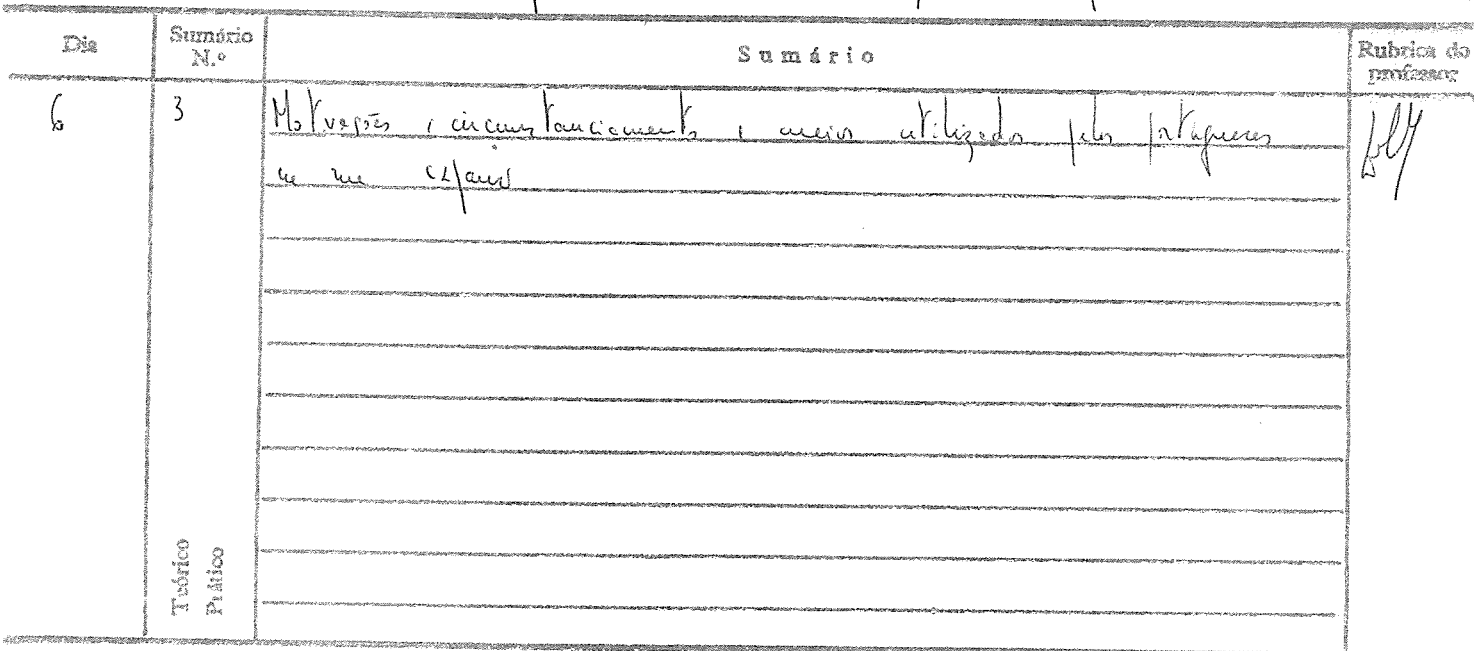 Dia
Sumário N.º
Sumário
Rubrica do professor
6
3
Motivações, circunstanciamento, meios utilizados pelos portugueses
na sua
Teórico
Prático